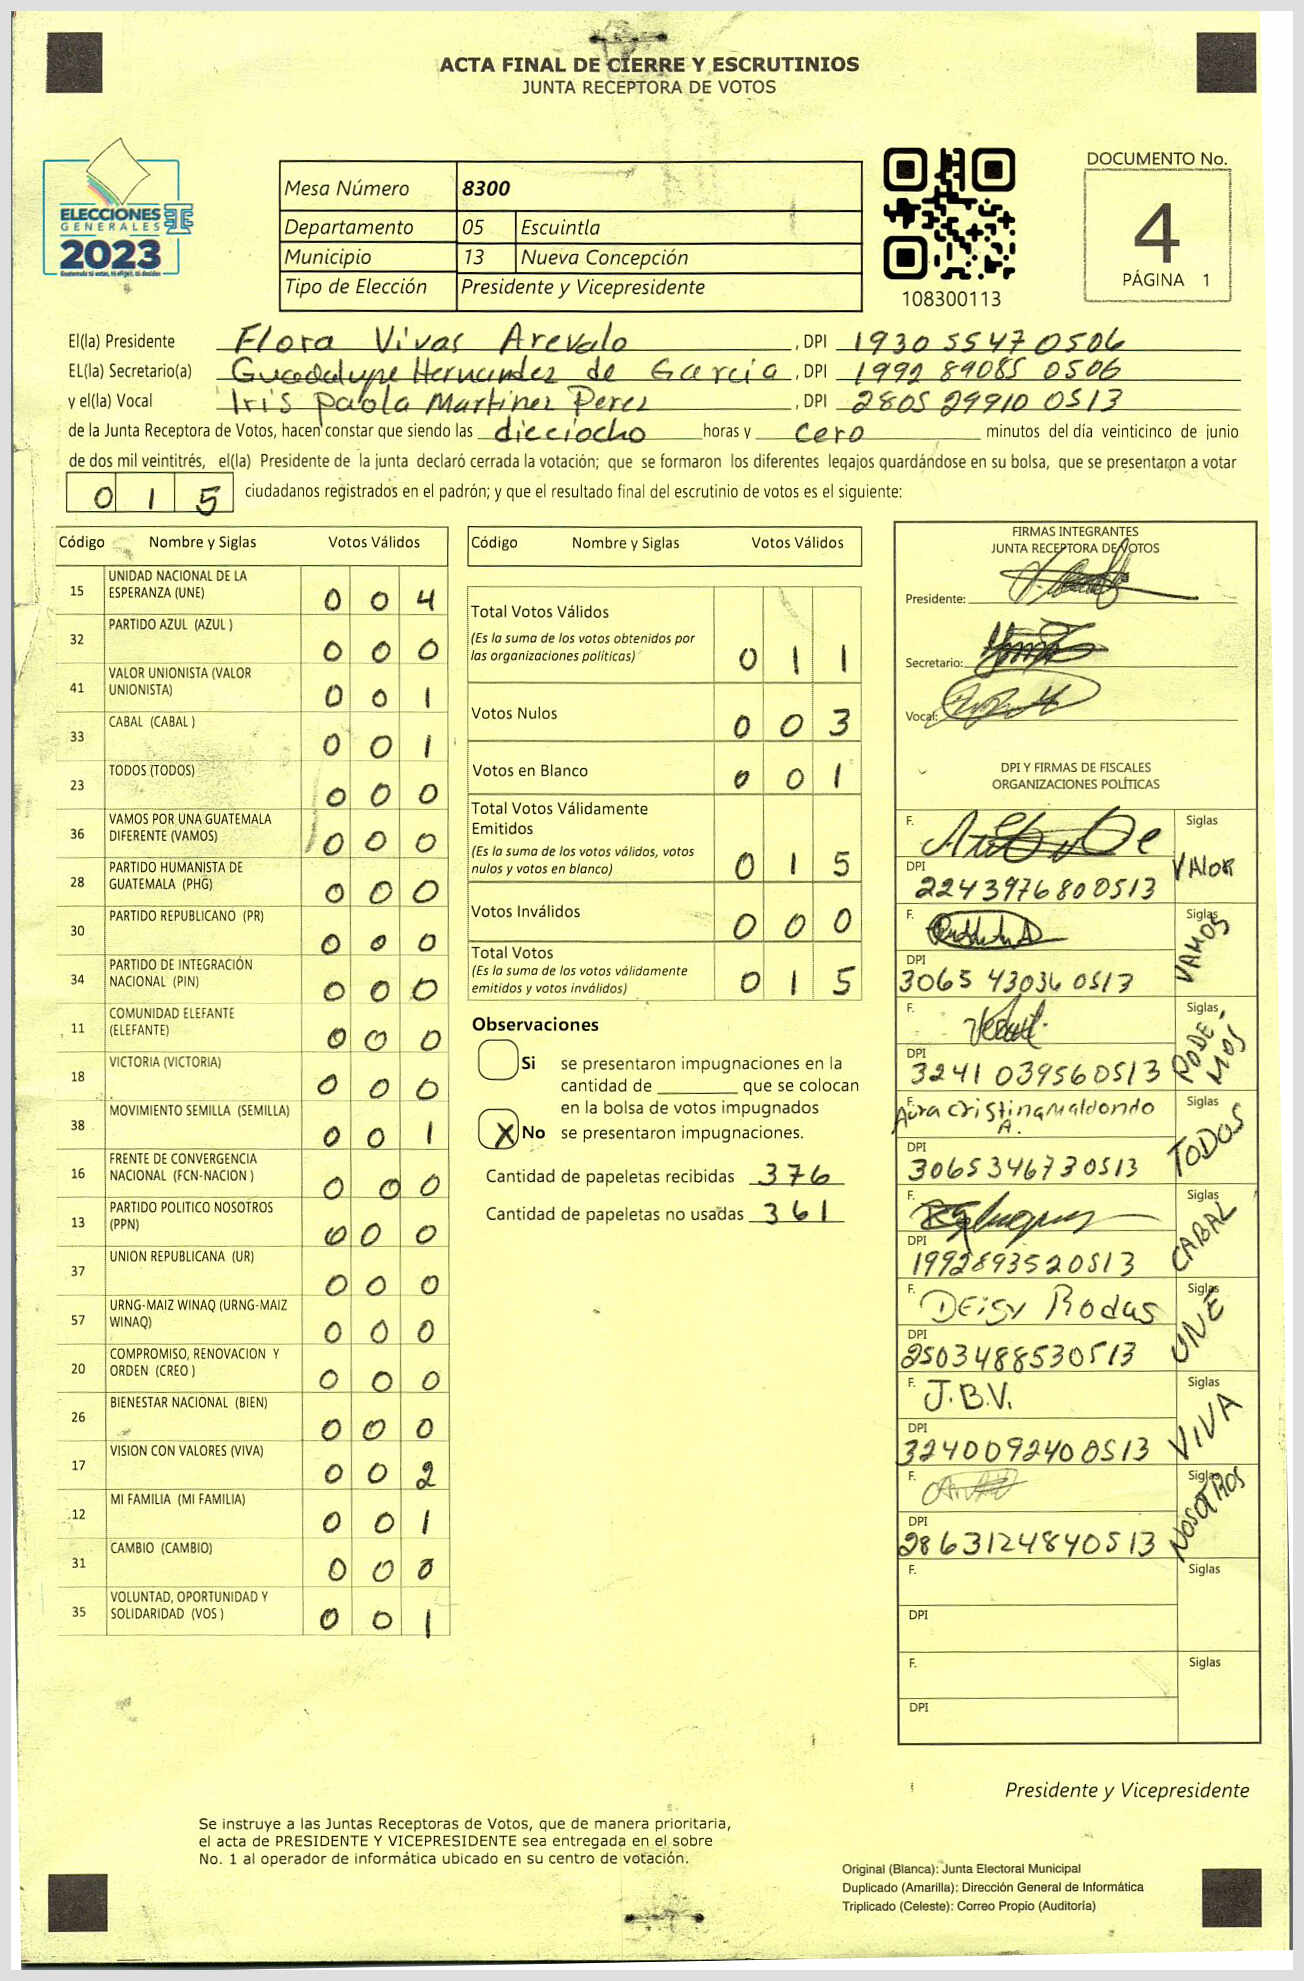 ACTA FINAL DE CIERRE Y ESCRUTINIOS
JUNTA RECEPTORA DE VOTOS
ELECCIONES
GENERALES
2023
Mesa Número 8300
Departamento 05 Escuintla
Municipio 13 Nueva Concepción
Tipo de Elección Presidente y Vicepresidente
108300113
DOCUMENTO No.
4
PÁGINA 1
El(la) Presidente Flora Vivas Arevalo, DPI 1930 55470506
EL(la) Secretario(a) Guadalupe Hernandez de Garcia, DPI 1992 89085 0506
y el(la) Vocal Iris paola Martinez Perez, DPI 2805 29910 0513
de la Junta Receptora de Votos, hacen constar que siendo las dieciocho horas y cero minutos del día veinticinco de junio
de dos mil veintitrés, el(la) Presidente de la junta declaró cerrada la votación; que se formaron los diferentes legajos guardándose en su bolsa, que se presentaron a votar
0 1 5 ciudadanos registrados en el padrón; y que el resultado final del escrutinio de votos es el siguiente:
Código Nombre y Siglas Votos Válidos
15 UNIDAD NACIONAL DE LA
ESPERANZA (UNE) 0 0 4
32 PARTIDO AZUL (AZUL ) 0 0 0
41 VALOR UNIONISTA (VALOR
UNIONISTA) 0 0 1
33 CABAL (CABAL ) 0 0 1
23 TODOS (TODOS) 0 0 0
36 VAMOS POR UNA GUATEMALA
DIFERENTE (VAMOS) 0 0 0
28 PARTIDO HUMANISTA DE
GUATEMALA (PHG) 0 0 0
30 PARTIDO REPUBLICANO (PR) 0 0 0
34 PARTIDO DE INTEGRACIÓN
NACIONAL (PIN) 0 0 0
11 COMUNIDAD ELEFANTE
(ELEFANTE) 0 0 0
18 VICTORIA (VICTORIA) 0 0 0
38 MOVIMIENTO SEMILLA (SEMILLA) 0 0 1
16 FRENTE DE CONVERGENCIA
NACIONAL (FCN-NACION ) 0 0 0
13 PARTIDO POLITICO NOSOTROS
(PPN) 0 0 0
37 UNION REPUBLICANA (UR) 0 0 0
57 URNG-MAIZ WINAQ (URNG-MAIZ
WINAQ) 0 0 0
20 COMPROMISO, RENOVACION Y
ORDEN (CREO ) 0 0 0
26 BIENESTAR NACIONAL (BIEN) 0 0 0
17 VISION CON VALORES (VIVA) 0 0 2
12 MI FAMILIA (MI FAMILIA) 0 0 1
31 CAMBIO (CAMBIO) 0 0 0
35 VOLUNTAD, OPORTUNIDAD Y
SOLIDARIDAD (VOS ) 0 0 1
Código Nombre y Siglas Votos Válidos
Total Votos Válidos
(Es la suma de los votos obtenidos por
las organizaciones políticas) 0 1 1
Votos Nulos 0 0 3
Votos en Blanco 0 0 1
Total Votos Válidamente
Emitidos
(Es la suma de los votos válidos, votos
nulos y votos en blanco) 0 1 5
Votos Inválidos 0 0 0
Total Votos
(Es la suma de los votos válidamente
emitidos y votos inválidos) 0 1 5
Observaciones
Si se presentaron impugnaciones en la
cantidad de ________ que se colocan
en la bolsa de votos impugnados
X No se presentaron impugnaciones.
Cantidad de papeletas recibidas 376
Cantidad de papeletas no usadas 361
FIRMAS INTEGRANTES
JUNTA RECEPTORA DE VOTOS
Presidente:
Secretario:
Vocal:
DPI Y FIRMAS DE FISCALES
ORGANIZACIONES POLÍTICAS
F. Siglas VALOR
DPI 2243976800513
F. Siglas VAMOS
DPI 3065 43036 0513
F. Siglas PODEMOS
DPI 3241 039560513
F. Aura Cristina Maldondo A. Siglas TODOS
DPI 3065346730513
F. Siglas CABAL
DPI 1992893520513
F. DEisy Rodas Siglas UNE
DPI 2503488530513
F. J.B.V. Siglas VIVA
DPI 3240092400513
F. Siglas NOSOTROS
DPI 2863124840513
F. Siglas
DPI
F. Siglas
DPI
Presidente y Vicepresidente
Se instruye a las Juntas Receptoras de Votos, que de manera prioritaria,
el acta de PRESIDENTE Y VICEPRESIDENTE sea entregada en el sobre
No. 1 al operador de informática ubicado en su centro de votación.
Original (Blanca): Junta Electoral Municipal
Duplicado (Amarilla): Dirección General de Informática
Triplicado (Celeste): Correo Propio (Auditoría)